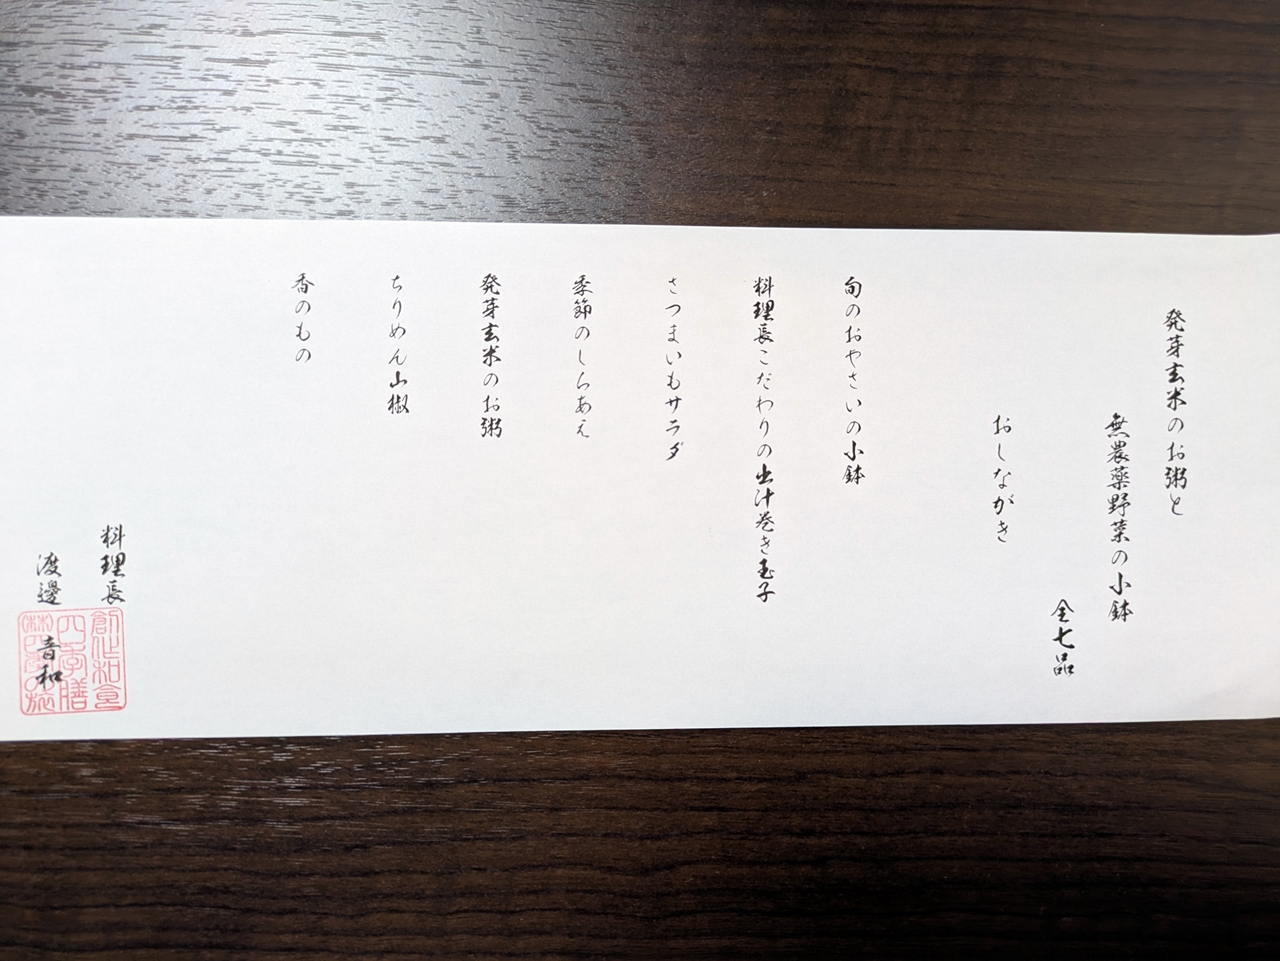 発芽玄米のお粥と
無農薬野菜の小鉢
全七品
おしながき
旬のおやさいの小鉢
料理長こだわりの出汁巻き玉子
さつまいもサラダ
季節のしらあえ
発芽玄米のお粥
ちりめん山椒
香のもの
料理長
渡邊 音和
創作和食
四季膳